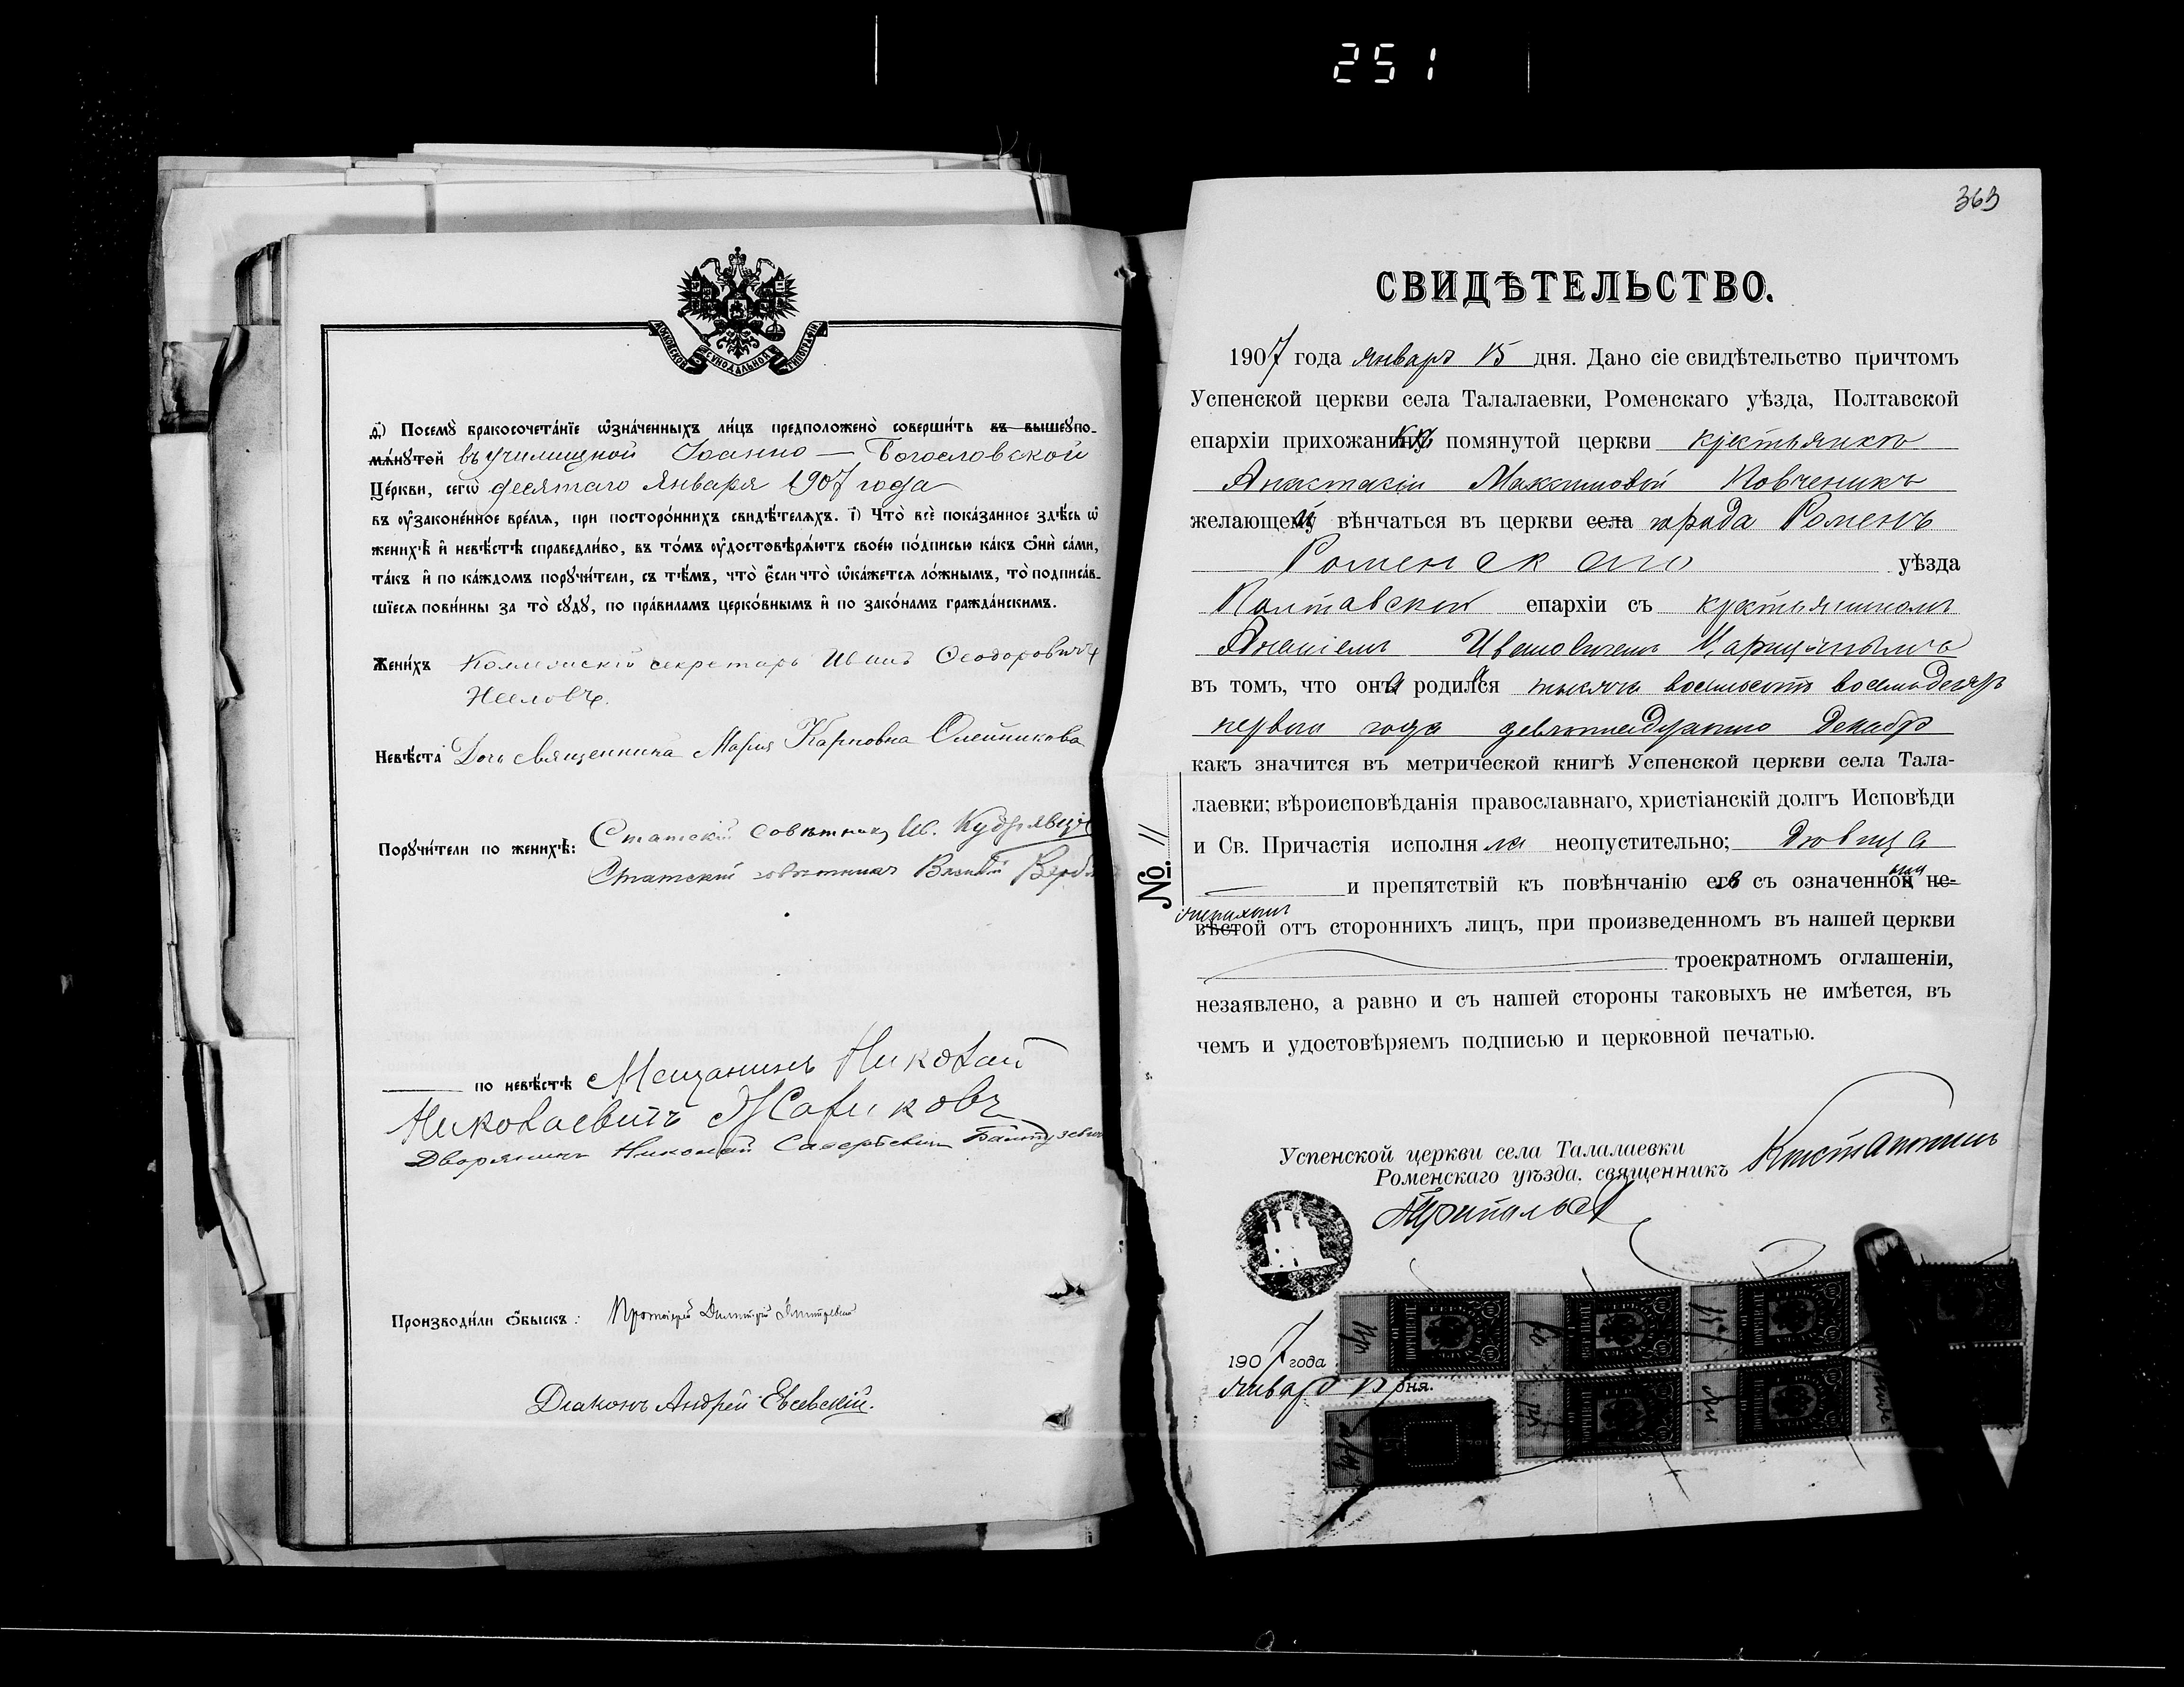 251
МОСКОВСКОЙ СѴНОДАЛЬНОЙ ТИПОГРАФІИ
д҃) Посемꙋ̀ бракосочета́нїе ѡ҆зна́ченныхъ ли́цъ предположено̀ соверши́ть въ вышеꙋпо-
мѧ́нꙋтой въ училищной Іоанно – Богословской
Це́ркви, сегѡ̀ десятаго Января 1907 года
въ ᲂу҆законе́нное вре́мѧ, при посторо́ннихъ свидѣ́телѧхъ. і҃) Что̀ всѐ пока́занное здѣ́сь ѡ҆
женихѣ̀ и҆ невѣ́стѣ справедли́во, въ то́мъ ᲂу҆достовѣрѧ́ютъ свое́ю по́дписью ка́къ ѻ҆нѝ са́ми,
та́къ и҆ по ка́ждомъ порꙋчи́тели, съ тѣ́мъ, что̀ є҆́сли что̀ ѡ҆ка́жетсѧ ло́жнымъ, то̀ подписа́в-
шїесѧ пови́нны за то̀ сꙋдꙋ̀, по пра́виламъ церко́внымъ и҆ по зако́намъ гражда́нскимъ.
Жени́хъ Коллежскій секретарь Иванъ Ѳеодоровичъ
Нееловъ.
Невѣ́ста Дочь священника Марія Карповна Олейникова
Порꙋчи́тели по женихѣ̀: Статскій совѣтникъ Ив. Кудрявцевъ
Статскій совѣтникъ
по невѣ́стѣ Мещанинъ Николай
Николаевичъ Жариковъ
Дворянинъ Николай
Производи́ли ѻ҆́быскъ: Протоіерей Димитрій
Діаконъ Андрей Евсевскій.
363
СВИДѢТЕЛЬСТВО.
1907 года январь 15 дня. Дано сіе свидѣтельство причтомъ
Успенской церкви села Талалаевки, Роменскаго уѣзда, Полтавской
епархіи прихожанкѣ помянутой церкви крестьянкѣ
Анастасіи Максимовой Ковченикъ
желающей вѣнчаться въ церкви села города Роменъ
Роменскаго уѣзда
Полтавской епархіи съ крестьяниномъ
Ивановичемъ
въ томъ, что она родилася тысяча восемьсотъ восемьдесятъ
перваго года девятнадцатаго Декабря
какъ значится въ метрической книгѣ Успенской церкви села Тала-
лаевки; вѣроисповѣданія православнаго, христіанскій долгъ Исповѣди
и Св. Причастія исполняла неопустительно; дѣвица
и препятствій къ повѣнчанію ея съ означеннымъ не-
вѣстой женихомъ отъ стороннихъ лицъ, при произведенномъ въ нашей церкви
троекратномъ оглашеніи,
незаявлено, а равно и съ нашей стороны таковыхъ не имѣется, въ
чемъ и удостовѣряемъ подписью и церковной печатью.
№ 11
Успенской церкви села Талалаевки
Роменскаго уѣзда, священникъ Константинъ
1907 года
января 15 дня.